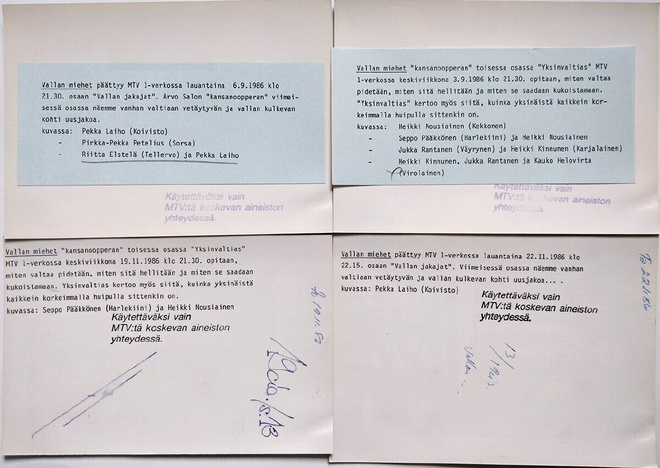 Vallan miehet päättyy MTV 1-verkossa lauantaina 6.9.1986 klo
21.30. osaan "Vallan jakajat". Arvo Salon "kansanoopperan" viimei-
sessä osassa näemme vanhan valtiaan vetäytyvän ja vallan kulkevan
kohti uusjakoa.
kuvassa: Pekka Laiho (Koivisto)
- Pirkka-Pekka Petelius (Sorsa)
- Riitta Elstelä (Tellervo) ja Pekka Laiho
Käytettäväksi vain
MTV:tä koskevan aineiston
yhteydessä.
Vallan miehet "kansanoopperan" toisessa osassa "Yksinvaltias" MTV
1-verkossa keskiviikkona 3.9.1986 klo 21.30. opitaan, miten valtaa
pidetään, miten sitä hellitään ja miten se saadaan kukoistamaan.
"Yksinvaltias" kertoo myös siitä, kuinka yksinäistä kaikkein kor-
keimmalla huipulla sittenkin on.
kuvassa: Heikki Nousiainen (Kekkonen)
- Seppo Pääkkönen (Harlekiini) ja Heikki Nousiainen
- Jukka Rantanen (Väyrynen) ja Heikki Kinnunen (Karjalainen)
- Heikki Kinnunen, Jukka Rantanen ja Kauko Helovirta
(Virolainen)
Käytettäväksi vain
MTV:tä koskevan aineiston
yhteydessä.
Vallan miehet "kansanoopperan" toisessa osassa "Yksinvaltias"
MTV 1-verkossa keskiviikkona 19.11.1986 klo 21.30. opitaan,
miten valtaa pidetään, miten sitä hellitään ja miten se saadaan
kukoistamaan. Yksinvaltias kertoo myös siitä, kuinka yksinäistä
kaikkein korkeimmalla huipulla sittenkin on.
kuvassa: Seppo Pääkkönen (Harlekiini) ja Heikki Nousiainen
Käytettäväksi vain
MTV:tä koskevan aineiston
yhteydessä.
Vallan miehet päättyy MTV 1-verkossa lauantaina 22.11.1986 klo
22.15. osaan "Vallan jakajat". Viimeisessä osassa näemme vanhan
valtiaan vetäytyvän ja vallan kulkevan kohti uusjakoa... .
kuvassa: Pekka Laiho (Koivisto)
Käytettäväksi vain
MTV:tä koskevan aineiston
yhteydessä.
13/
Vallan